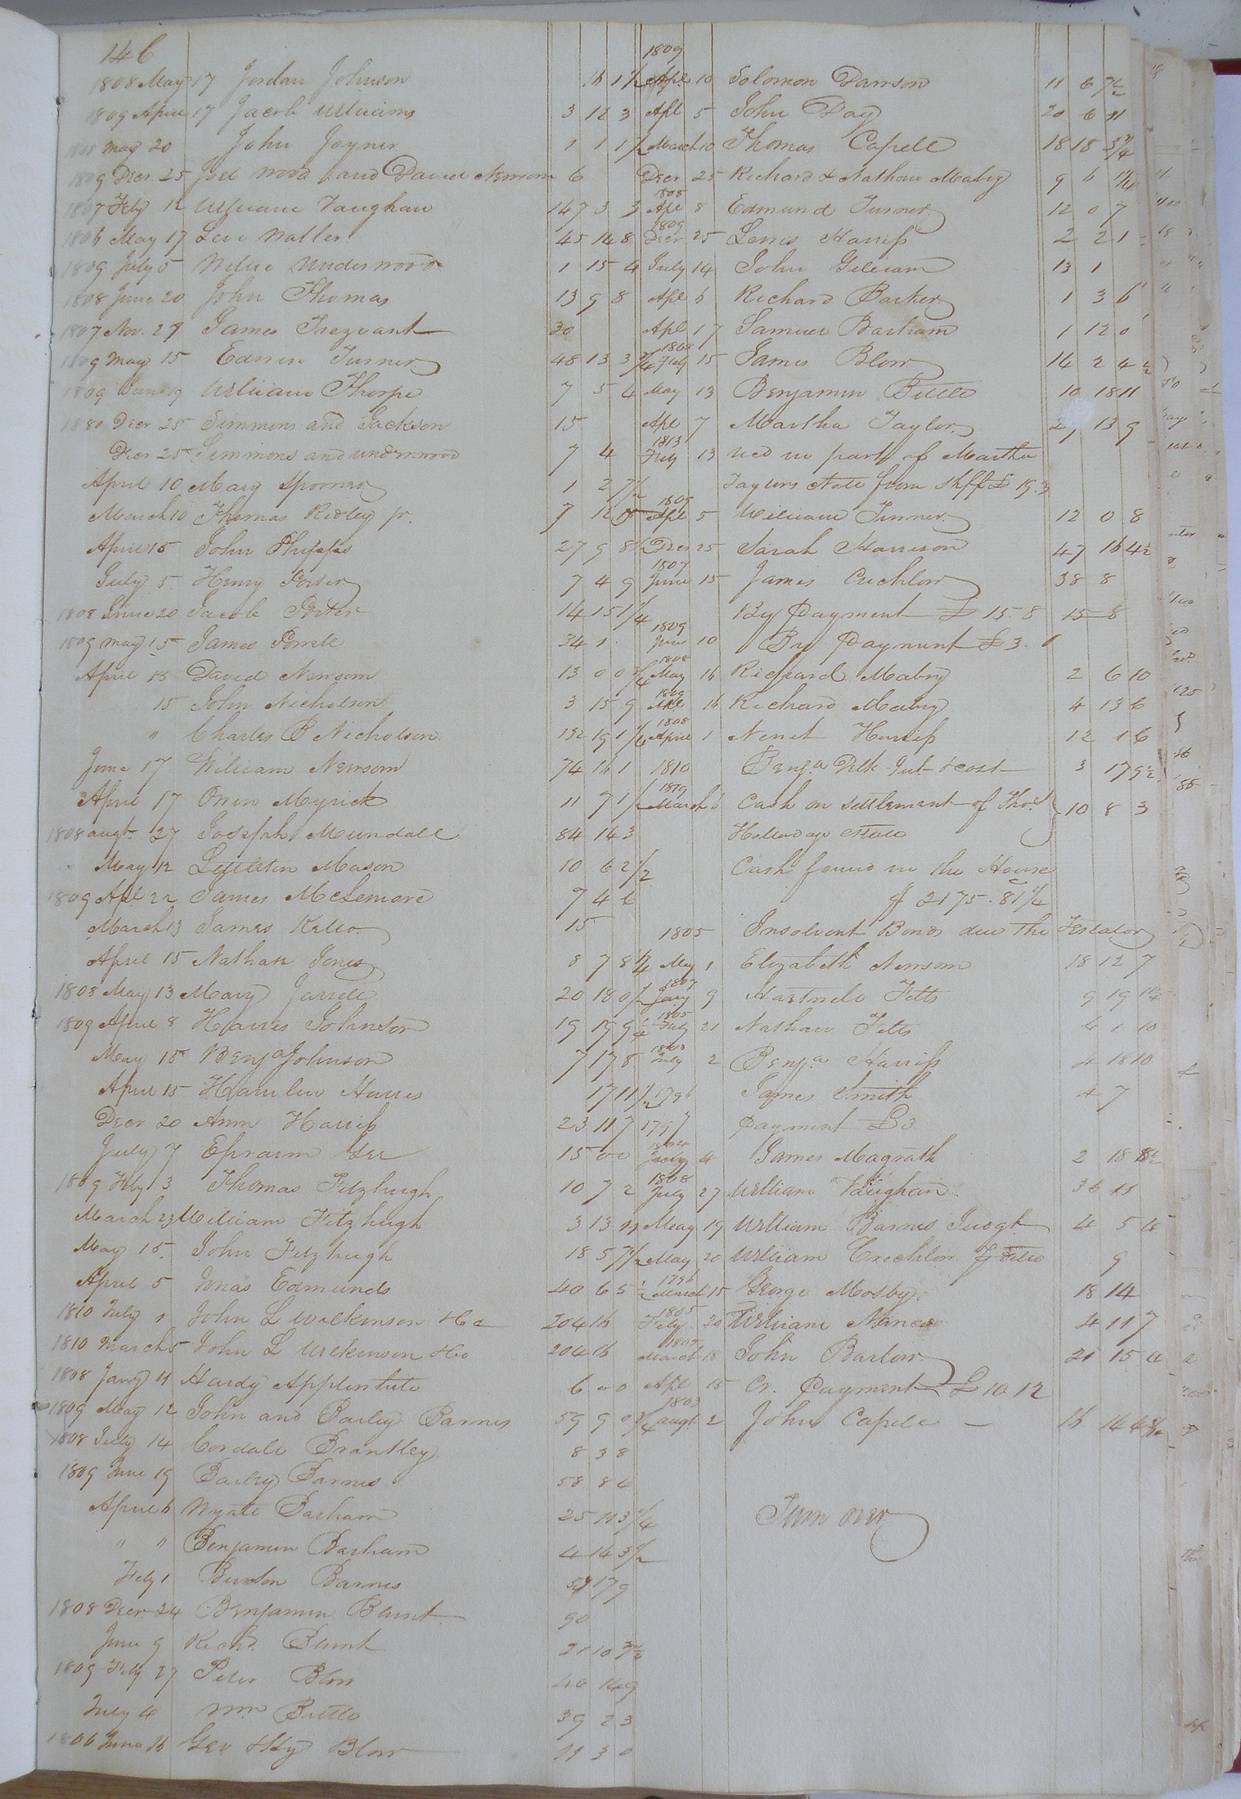 146
1808 May 17 Jordan Johnson 16 1 1/2
1809 April 17 Jacob Williams 3 12 3
May 20 John Joyner 1 1 1/2
1809 Decr 25 Joel Wood and David Newsom 6
1807 Feby 12 William Vaughan 147 3 3
1806 May 17 Levi Waller 45 14 8
1809 July 5 Wilie Underwood 1 15 4
1808 June 20 John Thomas 13 9 8
1807 Nov. 27 James Trezvant 30
1809 May 15 Edwin Turner 48 13 3 3/4
1809 June 19 William Thorpe 7 5 4
Decr 25 Simmons and Jackson 15
Decr 25 Simmons and underwood 7 4
April 10 Mary Spooner 1 2
March 10 Thomas Ridley Jr. 7
April 15 John Phipps 27 9 8
July 5 Henry Porter 7 4 9
1808 June 20 Jacob Porter 14 15 1/4
1809 May 15 James Powell 34 1
April 13 David Newsom 13 0 0
15 John Nicholson 3 15 9
" Charles B Nicholson 132 19 1 1/4
June 17 William Newsom 74 16 1
April 17 Owin Myrick 11 7 1/2
1808 augt 27 Joseph Mundall 84 14 3
May 12 Littleton Mason 10 6 2 1/2
1809 Apl 22 James McLemore 7 4 6
March 13 James Kelso 15
April 15 Nathan Jones 8 7 8 1/4
1808 May 13 Mary Jarrell 20 18 0 1/2
1809 April 8 Harris Johnson 19 19 9
May 15 Benja Johnson 7 17 8
April 15 Hamlin Harris 17 11 1/2
Decr 20 Ann Harriss 23 11 7
July 7 Ephraim Gee 15 0 0
1809 Feby 3 Thomas Fitzhugh 10 7 2
March 23 William Fitzhugh 3 13 11
May 15 John Fitzhugh 18 5 7 1/2
April 5 Jonas Edmunds 40 6 5
1810 July 1 John L Wilkinson &Co 204 16
1810 March 5 John L Wilkinson &Co 204 16
1808 Jany 11 Hardy Applewhite 6 0 0
1809 May 12 John and Bailey Barnes 59 9 0
1808 July 14 Cordall Brantley 8 3 8
1809 June 19 Bailey Barnes 58 8 6
April 6 Wyatt Barham 25 10 3 1/4
" " Benjamin Barham 4 14 3 1/2
Feby 1 Burton Barnes 17 9
1808 Decr 24 Benjamin Blunt 90
June 9 Richd. Blunt 21 10
1809 Feby 27 Peter Blow 40 14 9
July 4 Wm Bittle 39 2 3
1806 June 16 Geo &Hy Blow 11 3 0
1809
Apl 10 Solomon Dawson 11 6 7 1/2
Apl 5 John Day 20 6 11
March 10 Thomas Capell 18 18 3/4
Decr 25 Richard & Nathan Mabry 9 6
1808
Apl 8 Edmund Turner 12 0 7
1809
Decr 25 Lewis Harriss 2 2 1
July 14 John Gilliam 13 1
Apl 6 Richard Barker 1 3 6
Apl 17 Samuel Barham 1 12 0
1808
July 15 James Blow 14 2 4 1/2
May 13 Benjamin Bittle 10 18 11
Apl 7 Martha Taylor 13 9
1813
Feby 13 recd in part of Martha
Taylors etate from Shff £ 19.3
1809
Apl 5 William Turner 12 0 8
Decr 25 Sarah Harrison 47 16 4 1/2
1807
June 15 James Crichlow 38 8
By Payment £ 15.8 15 8
1809
June 10 By Payment £3. 1
1808
May 16 Richard Mabry 2 6 10
1809
Apl 16 Richard Mabry 4 13 6
1808
April 1 Newit Harriss 12 1 6
1810 Benja Delk Jut &cost 3 17 9 1/2
1819
March Cash on settlement of Thos 10 8 3
Holladays etate
Cash found in the House
$ 2175.81 1/4
1805 Insolvent Bonds due the Testator
May 1 Elizabeth Newsom 18 12 7
1807
Jany 9 Hartwell Felts 9 19
1805
July 21 Nathan Felts 4 1 10
July 2 Benja Harriss 4 18 10
1796 James Smith 4 7
1797 payment £3
July 4 James Magrath 2 18
1808
July 27 William Vaughan 36 11
May 19 William Barnes 4 5
May 20 William Crichlow 9
1796
March 15 George Mosby 18 14
1805
Feby 20 William Nance 4 11 7
March 18 John Barlow 21 15
Apl 15 Cr. Payment £ 10 12
1803
augt 2 John Capell — 16 14
Turn over